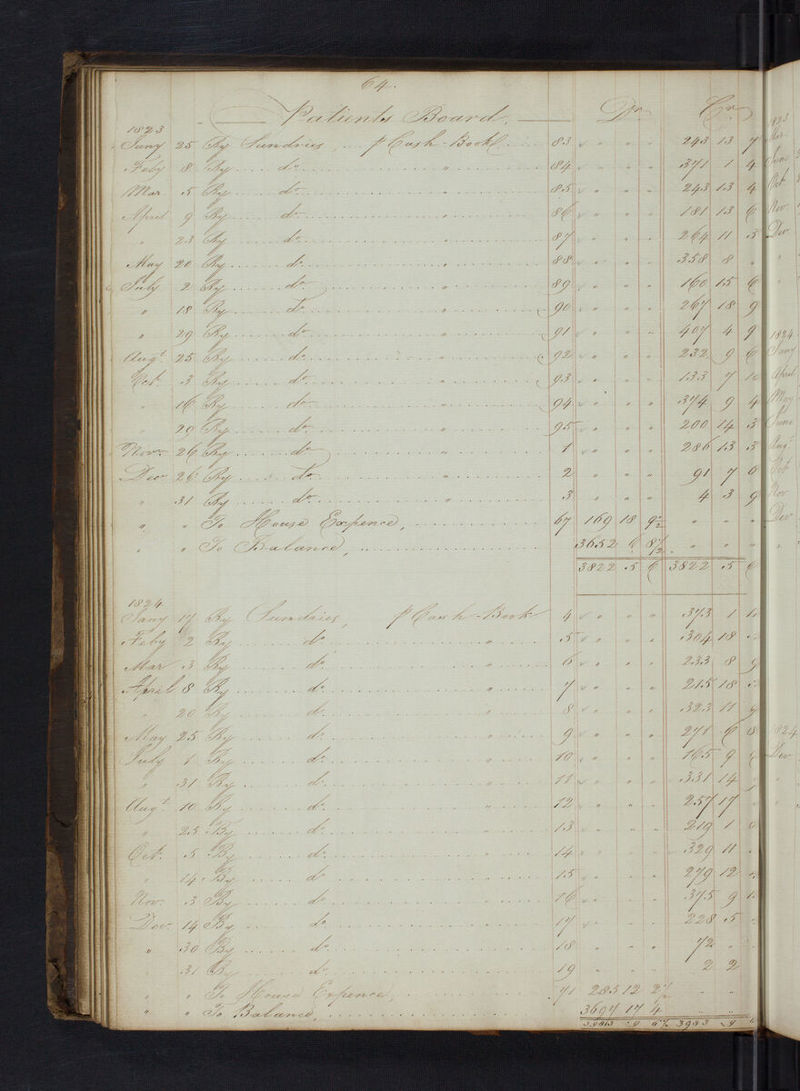 64.
Patients Board. Dr Cr
1823
Jany 25 By Sundries p Cash-Book 83 243 13 7
Feby 8 By do 84 371 1 4
Mar 5 By do 85 243 13 4
April 9 By do 86 181 13 6
" 23 By do 87 264 11 5
May 20 By do 88 358 8 .
July 2 By do 89 160 15 6
" 18 By do 90 267 18 9
" 29 By do 91 407 4 9
Augt 25 By do 92 232 9 6
Oct 3 By do 93 133 7 10
" 16 By do 94 374 9 4
" 29 By do 95 200 14 3
Novr 26 By do 1 286 13 3
Decr 26 By do 2 91 7
" 31 By do 3 4 3 9
" " To House Expence, 67 169 18 9½
" " To Balance, 3652 6 8½
3822 5 6 3822 5 6
1824
Jany 17 By Sundries, p Cash-Book 4 373 1
Feby 2 By do 5 304 18
Mar 3 By do 6 233 8 9
April 8 By do 7 215 18
" 20 By do 8 323 11 9
May 25 By do 9 271 6
July 1 By do 10 165 9
" 31 By do 11 331 14
Augt 10 By do 12 257 17
" 25 By do 13 219 1
Oct. 5 By do 14 329 11
" 14 By do 15 279 12
Nov. 3 By do 16 375 9
Decr 14 By do 17 228 5
" 30 By do 18 72
" 31 By do 19 2 2
" " To House Expence, 71 285 12 2½
" " To Balance, 3697 17 4